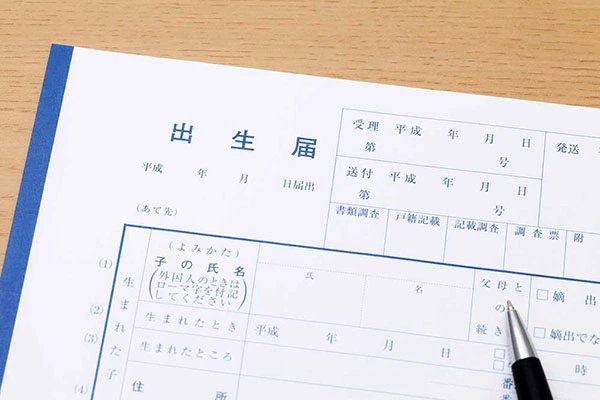 出生届
平成　年　月　日届出
(あて先)
受理　平成　年　月　日
第　号
発送
送付　平成　年　月　日
第　号
書類調査
戸籍記載
記載調査
調査票
附
(1)
生まれた子
(よみかた)
子の氏名
(外国人のときは
ローマ字を付記
してください)
氏
名
父母と
の
続き
□嫡出
□嫡出でな
(2)
生まれたとき
平成　年　月　日
時
(3)
生まれたところ
番
(4)
住所